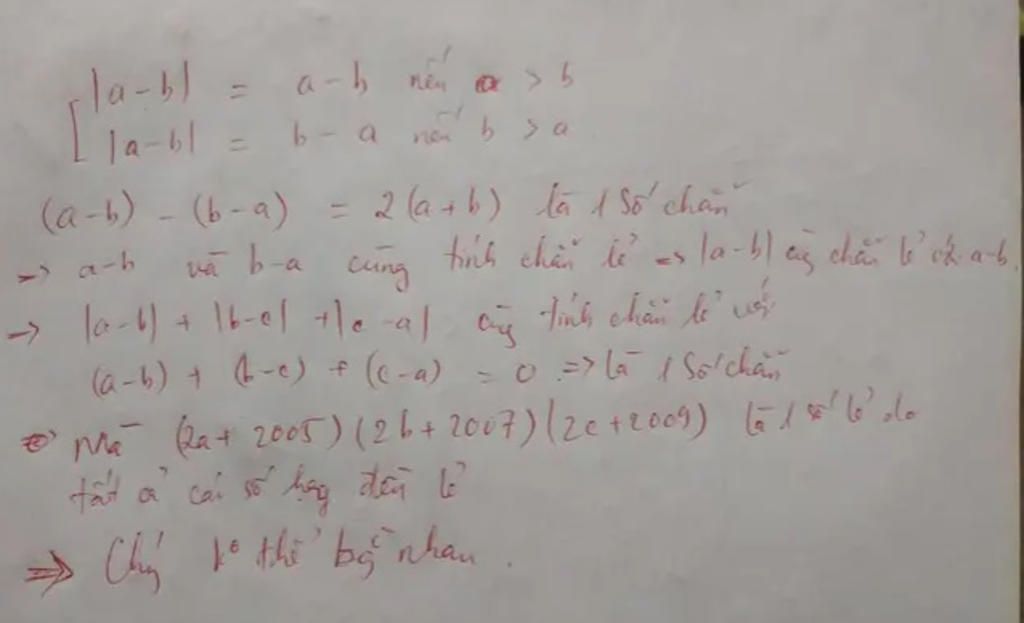 |a-b| = a-b nếu a > b
|a-b| = b-a nếu b > a
(a-b) - (b-a) = 2(a+b) là 1 số chẵn
→ a-b và b-a cùng tính chẵn lẻ => |a-b| cùng chẵn lẻ a-b.
→ |a-b| + |b-c| + |c-a| cùng tính chẵn lẻ với
(a-b) + (b-c) + (c-a) = 0 => là 1 số chẵn
Mà (2a+2005)(2b+2007)(2c+2009) là 1 số lẻ do
tất cả các số hạng đều lẻ
=> Chúng ko thể bằng nhau.